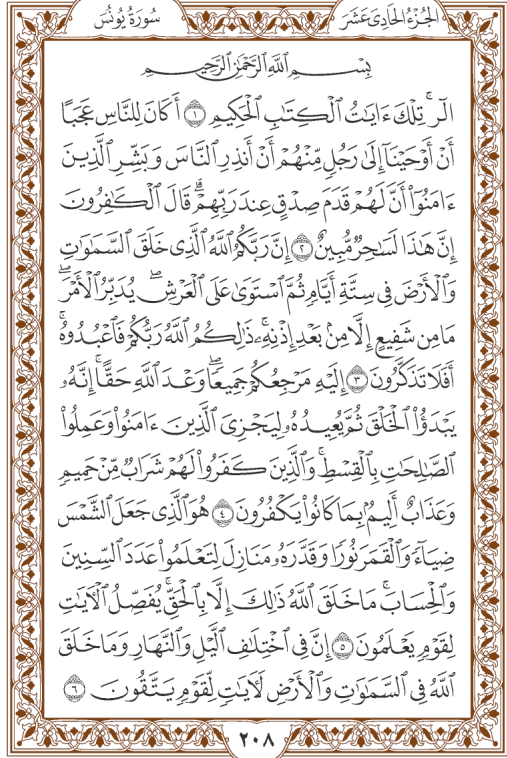 سُورَةُ يُونُسَ
الجُزْءُ الحَادِىَ عَشَرَ
بِسْمِ ٱللَّهِ ٱلرَّحْمَٰنِ ٱلرَّحِيمِ
الٓرۚ تِلْكَ ءَايَٰتُ ٱلْكِتَٰبِ ٱلْحَكِيمِ ١ أَكَانَ لِلنَّاسِ عَجَبًا
أَنْ أَوْحَيْنَآ إِلَىٰ رَجُلٍ مِّنْهُمْ أَنْ أَنذِرِ ٱلنَّاسَ وَبَشِّرِ ٱلَّذِينَ
ءَامَنُوٓا۟ أَنَّ لَهُمْ قَدَمَ صِدْقٍ عِندَ رَبِّهِمْۗ قَالَ ٱلْكَٰفِرُونَ
إِنَّ هَٰذَا لَسَٰحِرٌ مُّبِينٌ ٢ إِنَّ رَبَّكُمُ ٱللَّهُ ٱلَّذِى خَلَقَ ٱلسَّمَٰوَٰتِ
وَٱلْأَرْضَ فِى سِتَّةِ أَيَّامٍ ثُمَّ ٱسْتَوَىٰ عَلَى ٱلْعَرْشِۖ يُدَبِّرُ ٱلْأَمْرَۖ
مَا مِن شَفِيعٍ إِلَّا مِنۢ بَعْدِ إِذْنِهِۦۚ ذَٰلِكُمُ ٱللَّهُ رَبُّكُمْ فَٱعْبُدُوهُۚ
أَفَلَا تَذَكَّرُونَ ٣ إِلَيْهِ مَرْجِعُكُمْ جَمِيعًاۖ وَعْدَ ٱللَّهِ حَقًّاۚ إِنَّهُۥ
يَبْدَؤُا۟ ٱلْخَلْقَ ثُمَّ يُعِيدُهُۥ لِيَجْزِىَ ٱلَّذِينَ ءَامَنُوا۟ وَعَمِلُوا۟
ٱلصَّٰلِحَٰتِ بِٱلْقِسْطِۚ وَٱلَّذِينَ كَفَرُوا۟ لَهُمْ شَرَابٌ مِّنْ حَمِيمٍ
وَعَذَابٌ أَلِيمٌۢ بِمَا كَانُوا۟ يَكْفُرُونَ ٤ هُوَ ٱلَّذِى جَعَلَ ٱلشَّمْسَ
ضِيَآءً وَٱلْقَمَرَ نُورًا وَقَدَّرَهُۥ مَنَازِلَ لِتَعْلَمُوا۟ عَدَدَ ٱلسِّنِينَ
وَٱلْحِسَابَۚ مَا خَلَقَ ٱللَّهُ ذَٰلِكَ إِلَّا بِٱلْحَقِّۚ يُفَصِّلُ ٱلْءَايَٰتِ
لِقَوْمٍ يَعْلَمُونَ ٥ إِنَّ فِى ٱخْتِلَٰفِ ٱلَّيْلِ وَٱلنَّهَارِ وَمَا خَلَقَ
ٱللَّهُ فِى ٱلسَّمَٰوَٰتِ وَٱلْأَرْضِ لَءَايَٰتٍ لِّقَوْمٍ يَتَّقُونَ ٦
٢٠٨